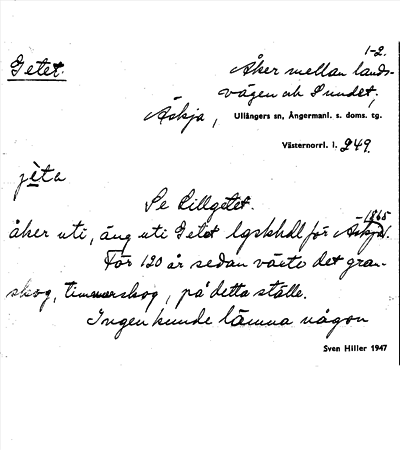 1-2.
Getet.
Åker mellan lands-
vägen och Sundet,
Äskja, Ullångers sn, Ångermanl. s. doms. tg.
Västernorrl. l. 249.
jèta
Se Lillgetet.
1865
åker uti, äng uti Getet lgskhdl för Äskja.
För 120 år sedan växte det gran-
skog, timmerskog, på detta ställe.
Ingen kunde lämna någon
Sven Hiller 1947